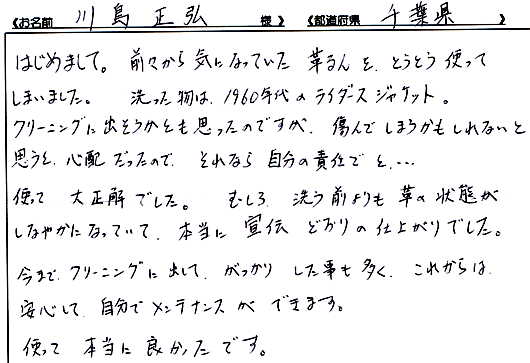 《お名前 川島 正弘 様》《都道府県 千葉県 》
はじめまして。前々から気になっていた 革るんを、とうとう使って
しまいました。 洗った物は、1960年代のライダースジャケット。
クリーニングに出そうかとも思ったのですが、傷んでしまうかもしれないと
思うと、心配だったので、それなら自分の責任でと、…
使って 大正解でした。 むしろ、洗う前よりも革の状態が
しなやかになっていて、本当に宣伝どおりの仕上がりでした。
今まで、クリーニングに出して、がっかりした事も多く、これからは、
安心して、自分でメンテナンスができます。
使って 本当に良かったです。